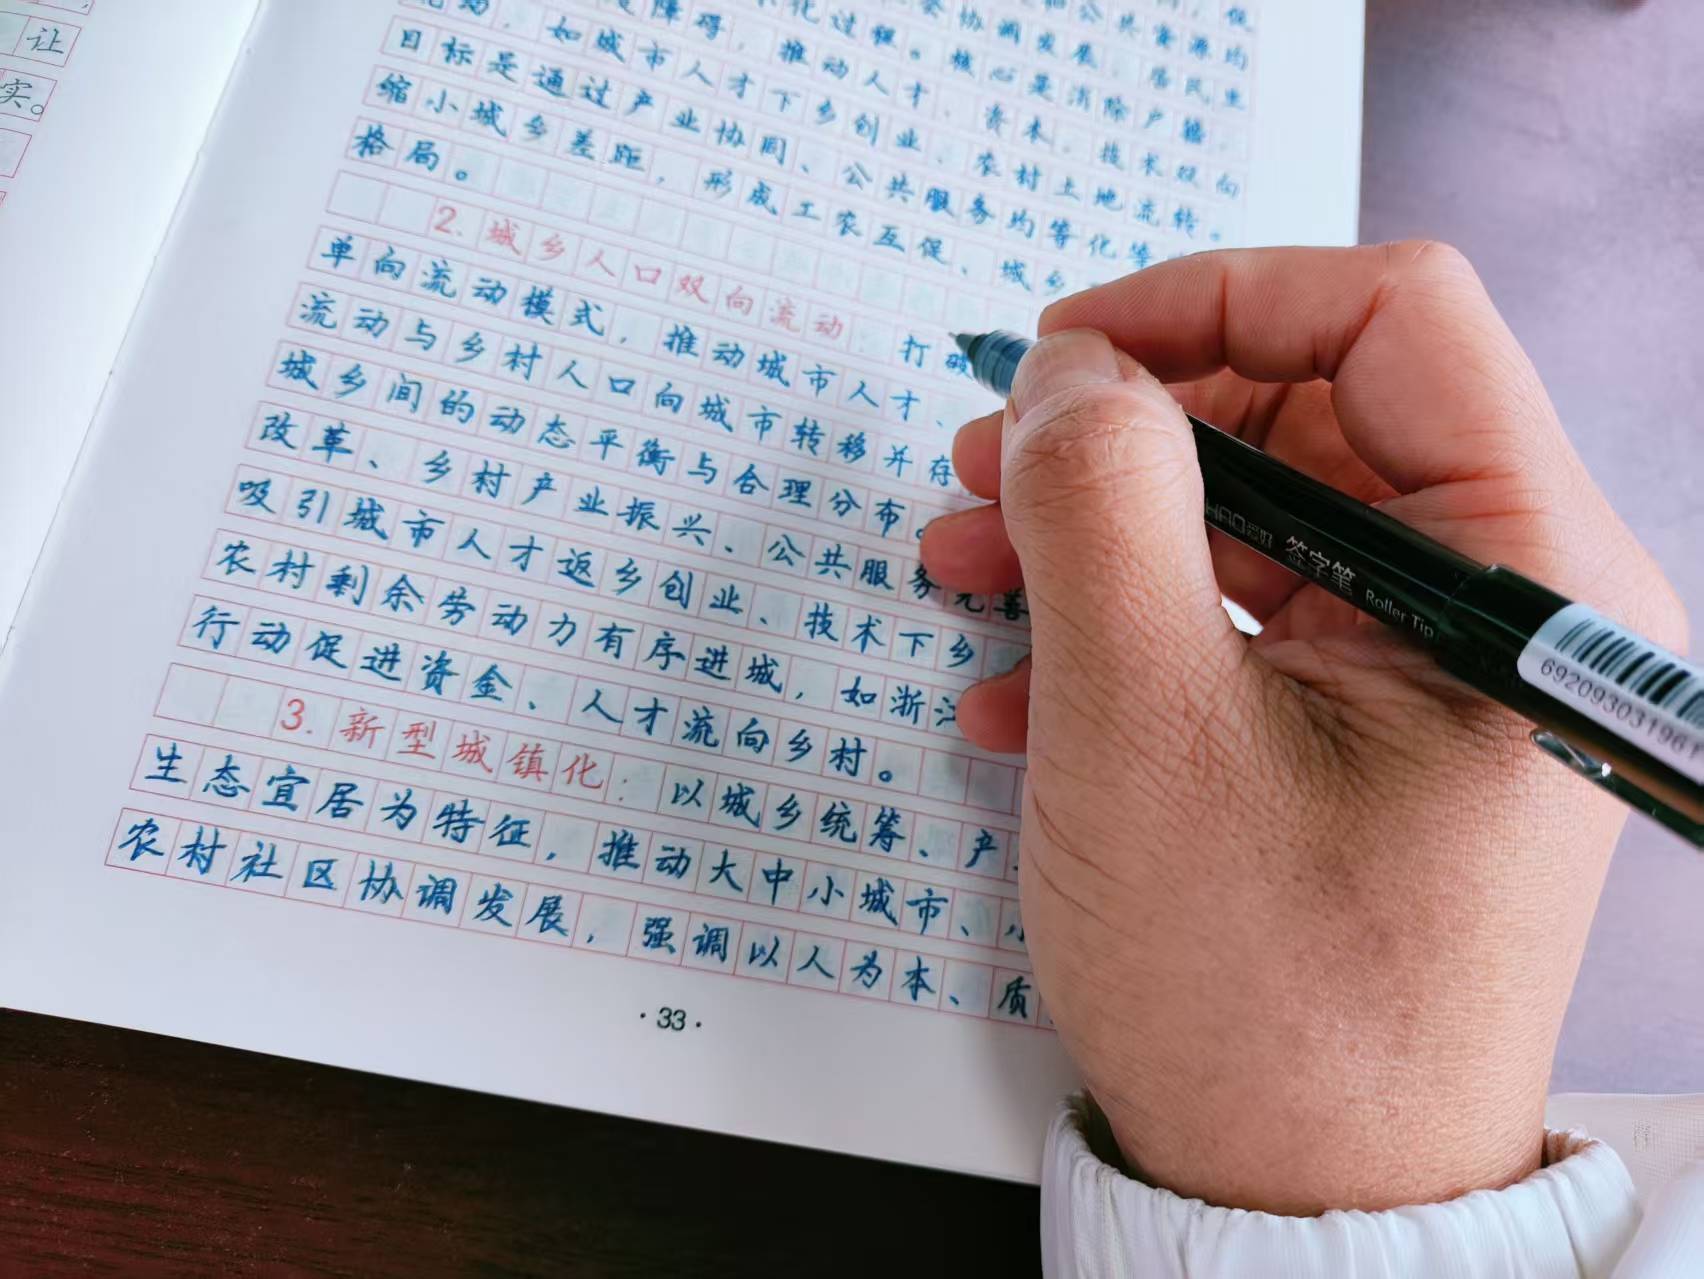 让
实。
公共资源均
协调发展、居民
化过程。核心是消除户籍、
障碍，推动人才、资本、技术双向
如城市人才下乡创业、农村土地流转。
目标是通过产业协同、公共服务均等化等
缩小城乡差距，形成工农互促、城乡
格局。
2. 城乡人口双向流动：打破
单向流动模式，推动城市人才、
流动与乡村人口向城市转移并存
城乡间的动态平衡与合理分布。
改革、乡村产业振兴、公共服务完善
吸引城市人才返乡创业、技术下乡
农村剩余劳动力有序进城，如浙江
行动促进资金、人才流向乡村。
3. 新型城镇化：以城乡统筹、产
生态宜居为特征，推动大中小城市、
农村社区协调发展，强调以人为本、质
·33·
签字笔 Roller Tip